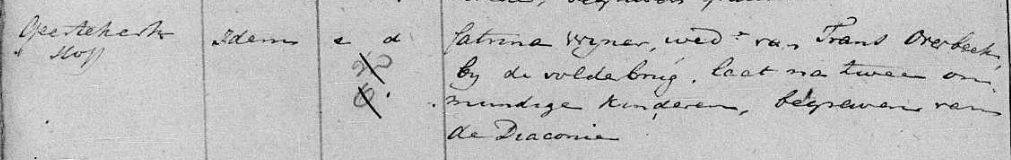 Geertekerk Idem e d Catrina Wyner, wed.e van Frans Overbeek,
Hoff by de volde brug, laat na twee on,
mundige kinderen, begraven van
de Diaconie